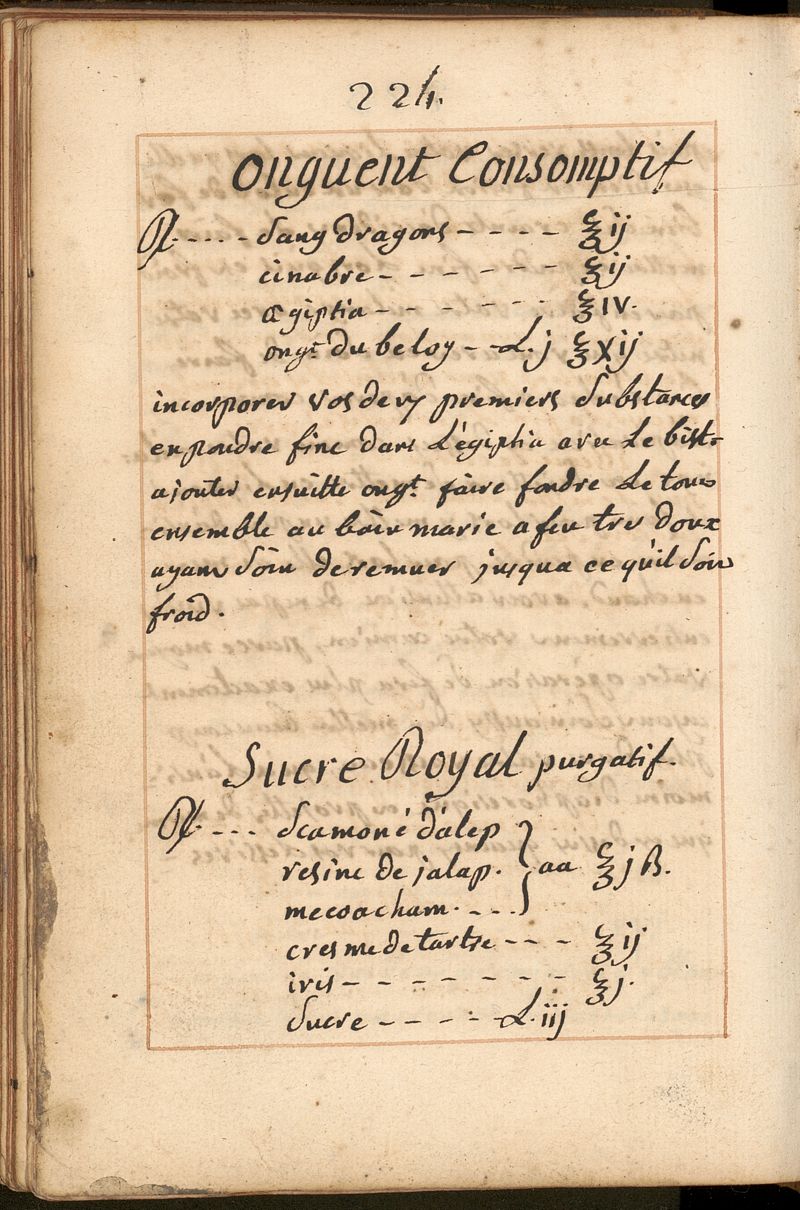 224.
Onguent Consomptif
℞. - - - - Sang dragons - - - - ℥ij
cinabre - - - - - - ℥ij
ægiptia - - - - - - ℥IV.
ongt. du beloy - - L. j ℥Xij
incorporer vos deux premiers substances
en poudre fine dans L'égiptia avec Le bist.
ajouter ensuitte ongt. faire fondre Le tous
ensemble au bain marie a feu tres doux
ayant soin de remuer jusqua ce qu'il soit
froid.
Sucre Royal purgatif.
℞. - - - Scamoné d'alep
resine de jalap. aa ℥jß.
mecoacham. - - -
cresme de tartre - - - ℥ij
iris - - - - - - - ℥j.
Sucre - - - - - L. iij